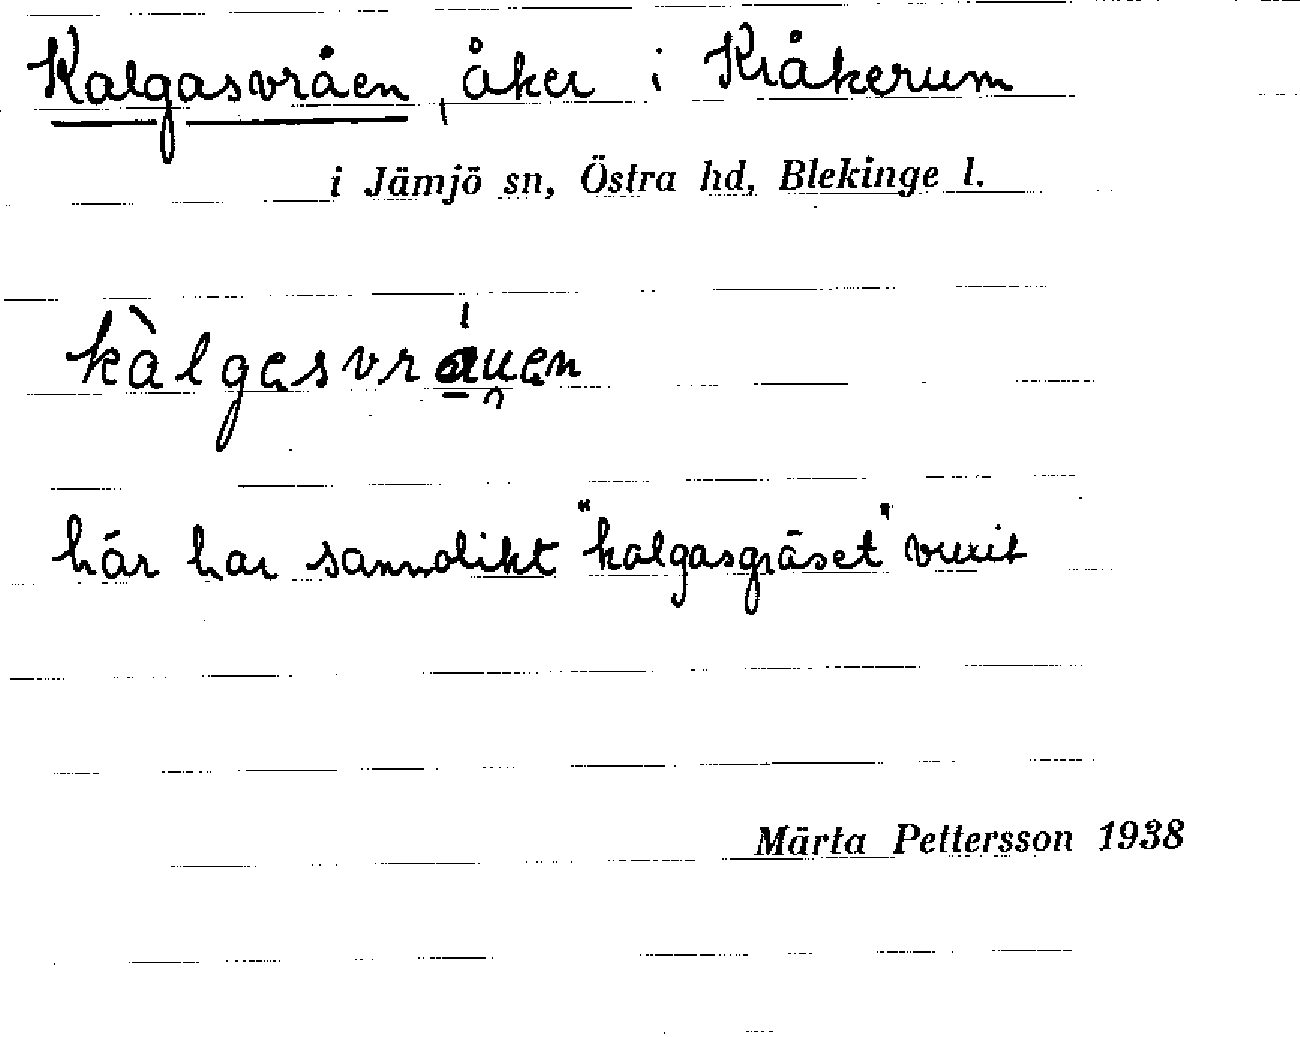 Kalgasvråen, åker i Kråkerum
i Jämjö sn, Östra hd, Blekinge l.
kàlgasvráu̯en
här har sannolikt "kalgasgräset" vuxit
Märta Pettersson 1938